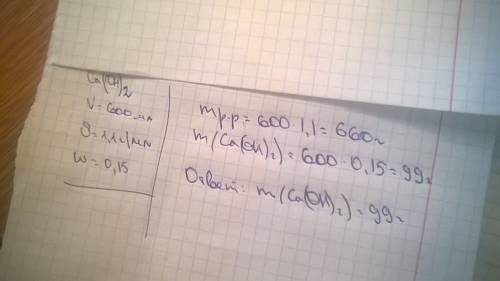 Ca(OH)₂
V=600 мл
ρ=1,1 г/мл
w=0,15
mр-р=600·1,1=660г
m(Ca(OH)₂)=600·0,15=99г
Ответ: m(Ca(OH)₂)=99г